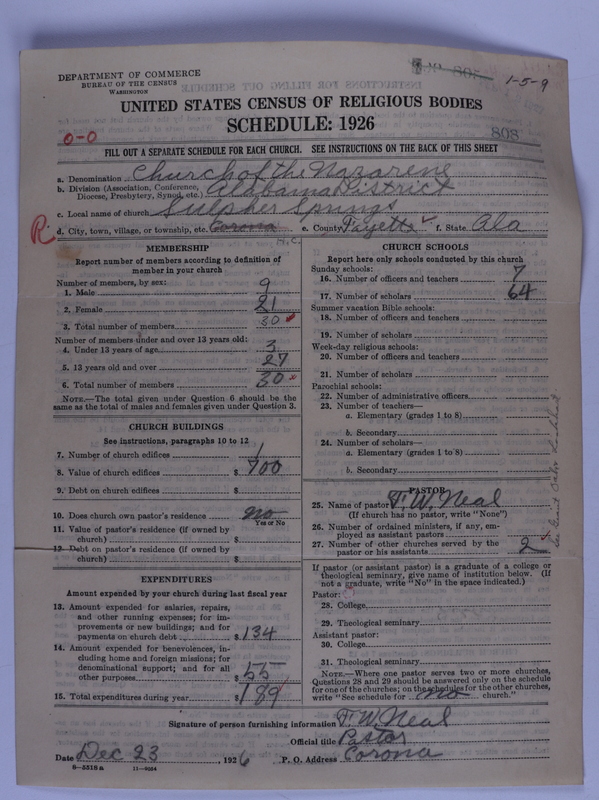 DEPARTMENT OF COMMERCE
BUREAU OF THE CENSUS
WASHINGTON
1-5-9
UNITED STATES CENSUS OF RELIGIOUS BODIES
SCHEDULE: 1926
808
0-0
FILL OUT A SEPARATE SCHEDULE FOR EACH CHURCH. SEE INSTRUCTIONS ON THE BACK OF THIS SHEET
a. Denomination Church of the Nazarene
b. Division (Association, Conference, Diocese, Presbytery, Synod, etc.) Alabama District
c. Local name of church Sulpher Springs
R. d. City, town, village, or township, etc. Corona e. County Fayette f. State Ala
H.C.
MEMBERSHIP
Report number of members according to definition of member in your church
Number of members, by sex:
1. Male 9
2. Female 21
3. Total number of members 30
Number of members under and over 13 years old:
4. Under 13 years of age 3
5. 13 years old and over 27
6. Total number of members 30
NOTE.—The total given under Question 6 should be the same as the total of males and females given under Question 3.
CHURCH BUILDINGS
See instructions, paragraphs 10 to 12
7. Number of church edifices 1
8. Value of church edifices $ 700
9. Debt on church edifices $
10. Does church own pastor's residence No
Yes or No
11. Value of pastor's residence (if owned by church) $
12. Debt on pastor's residence (if owned by church) $
EXPENDITURES
Amount expended by your church during last fiscal year
13. Amount expended for salaries, repairs, and other running expenses; for improvements or new buildings; and for payments on church debt $ 134
14. Amount expended for benevolences, including home and foreign missions; for denominational support; and for all other purposes $ 55
15. Total expenditures during year $ 189
CHURCH SCHOOLS
Report here only schools conducted by this church
Sunday schools:
16. Number of officers and teachers 7
17. Number of scholars 64
Summer vacation Bible schools:
18. Number of officers and teachers
19. Number of scholars
Week-day religious schools:
20. Number of officers and teachers
21. Number of scholars
Parochial schools:
22. Number of administrative officers
23. Number of teachers—
a. Elementary (grades 1 to 8)
b. Secondary
24. Number of scholars—
a. Elementary (grades 1 to 8)
b. Secondary
PASTOR
25. Name of pastor F. W. Neal
(If church has no pastor, write "None")
26. Number of ordained ministers, if any, employed as assistant pastors
27. Number of other churches served by the pastor or his assistants 2
If pastor (or assistant pastor) is a graduate of a college or theological seminary, give name of institution below. (If not a graduate, write "No" in the space indicated.)
Pastor:
28. College
29. Theological seminary
Assistant pastor:
30. College
31. Theological seminary
NOTE.—Where one pastor serves two or more churches, Questions 28 and 29 should be answered only on the schedule for one of the churches; on the schedules for the other churches, write "See schedule for no church."
Signature of person furnishing information F. W. Neal
Official title Pastor
Date Dec 23, 1926 P. O. Address Corona
8-5518 a 11-9034